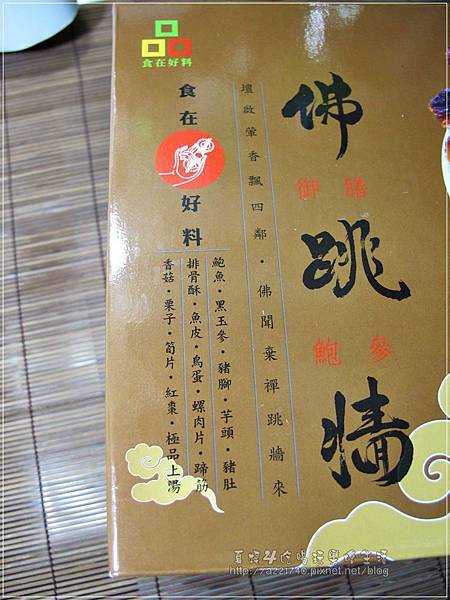 佛跳牆
御膳
鮑參
壇啟葷香飄四鄰·佛聞棄禪跳牆來
食在好料
食在
好料
鮑魚·黑玉參·豬腳·芋頭·豬肚
排骨酥·魚皮·鳥蛋·螺肉片·蹄筋
香菇·栗子·筍片·紅棗·極品上湯
http://a221740.pixnet.net/blog